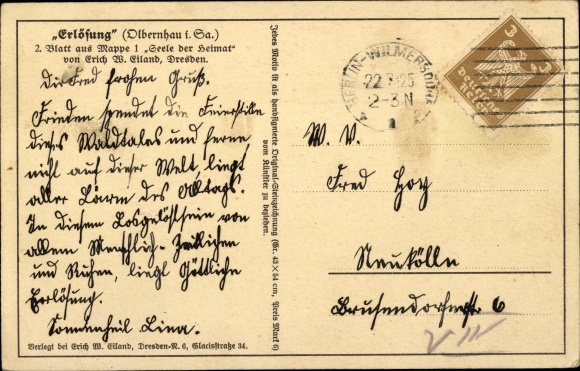 „Erlösung" (Olbernhau i. Sa.)
2. Blatt aus Mappe 1 „Seele der Heimat"
von Erich W. Eiland, Dresden.
Dir Fred frohen Gruß.
Frieden spendet die Feierstille
dieses Waldtales und ferne,
nicht auf dieser Welt, liegt
aller Lärm des Alltags.
In diesem Losgelöstsein von
allem Menschlich-Zeitlichen
und Ruhen, liegt Göttliche
Erlösung.
Sonnenheil Lina.
Verlegt bei Erich W. Eiland, Dresden-N. 6, Glacisstraße 34.
Jedes Motiv ist als handsignierte Original-Steinzeichnung (Gr. 43×54 cm, Preis Mark 6)
vom Künstler zu beziehen.
BERLIN-WILMERSDORF
22.7.25
2-3 N
3 3
Deutsches
Reich
W. V.
Fred
Neukölln
6